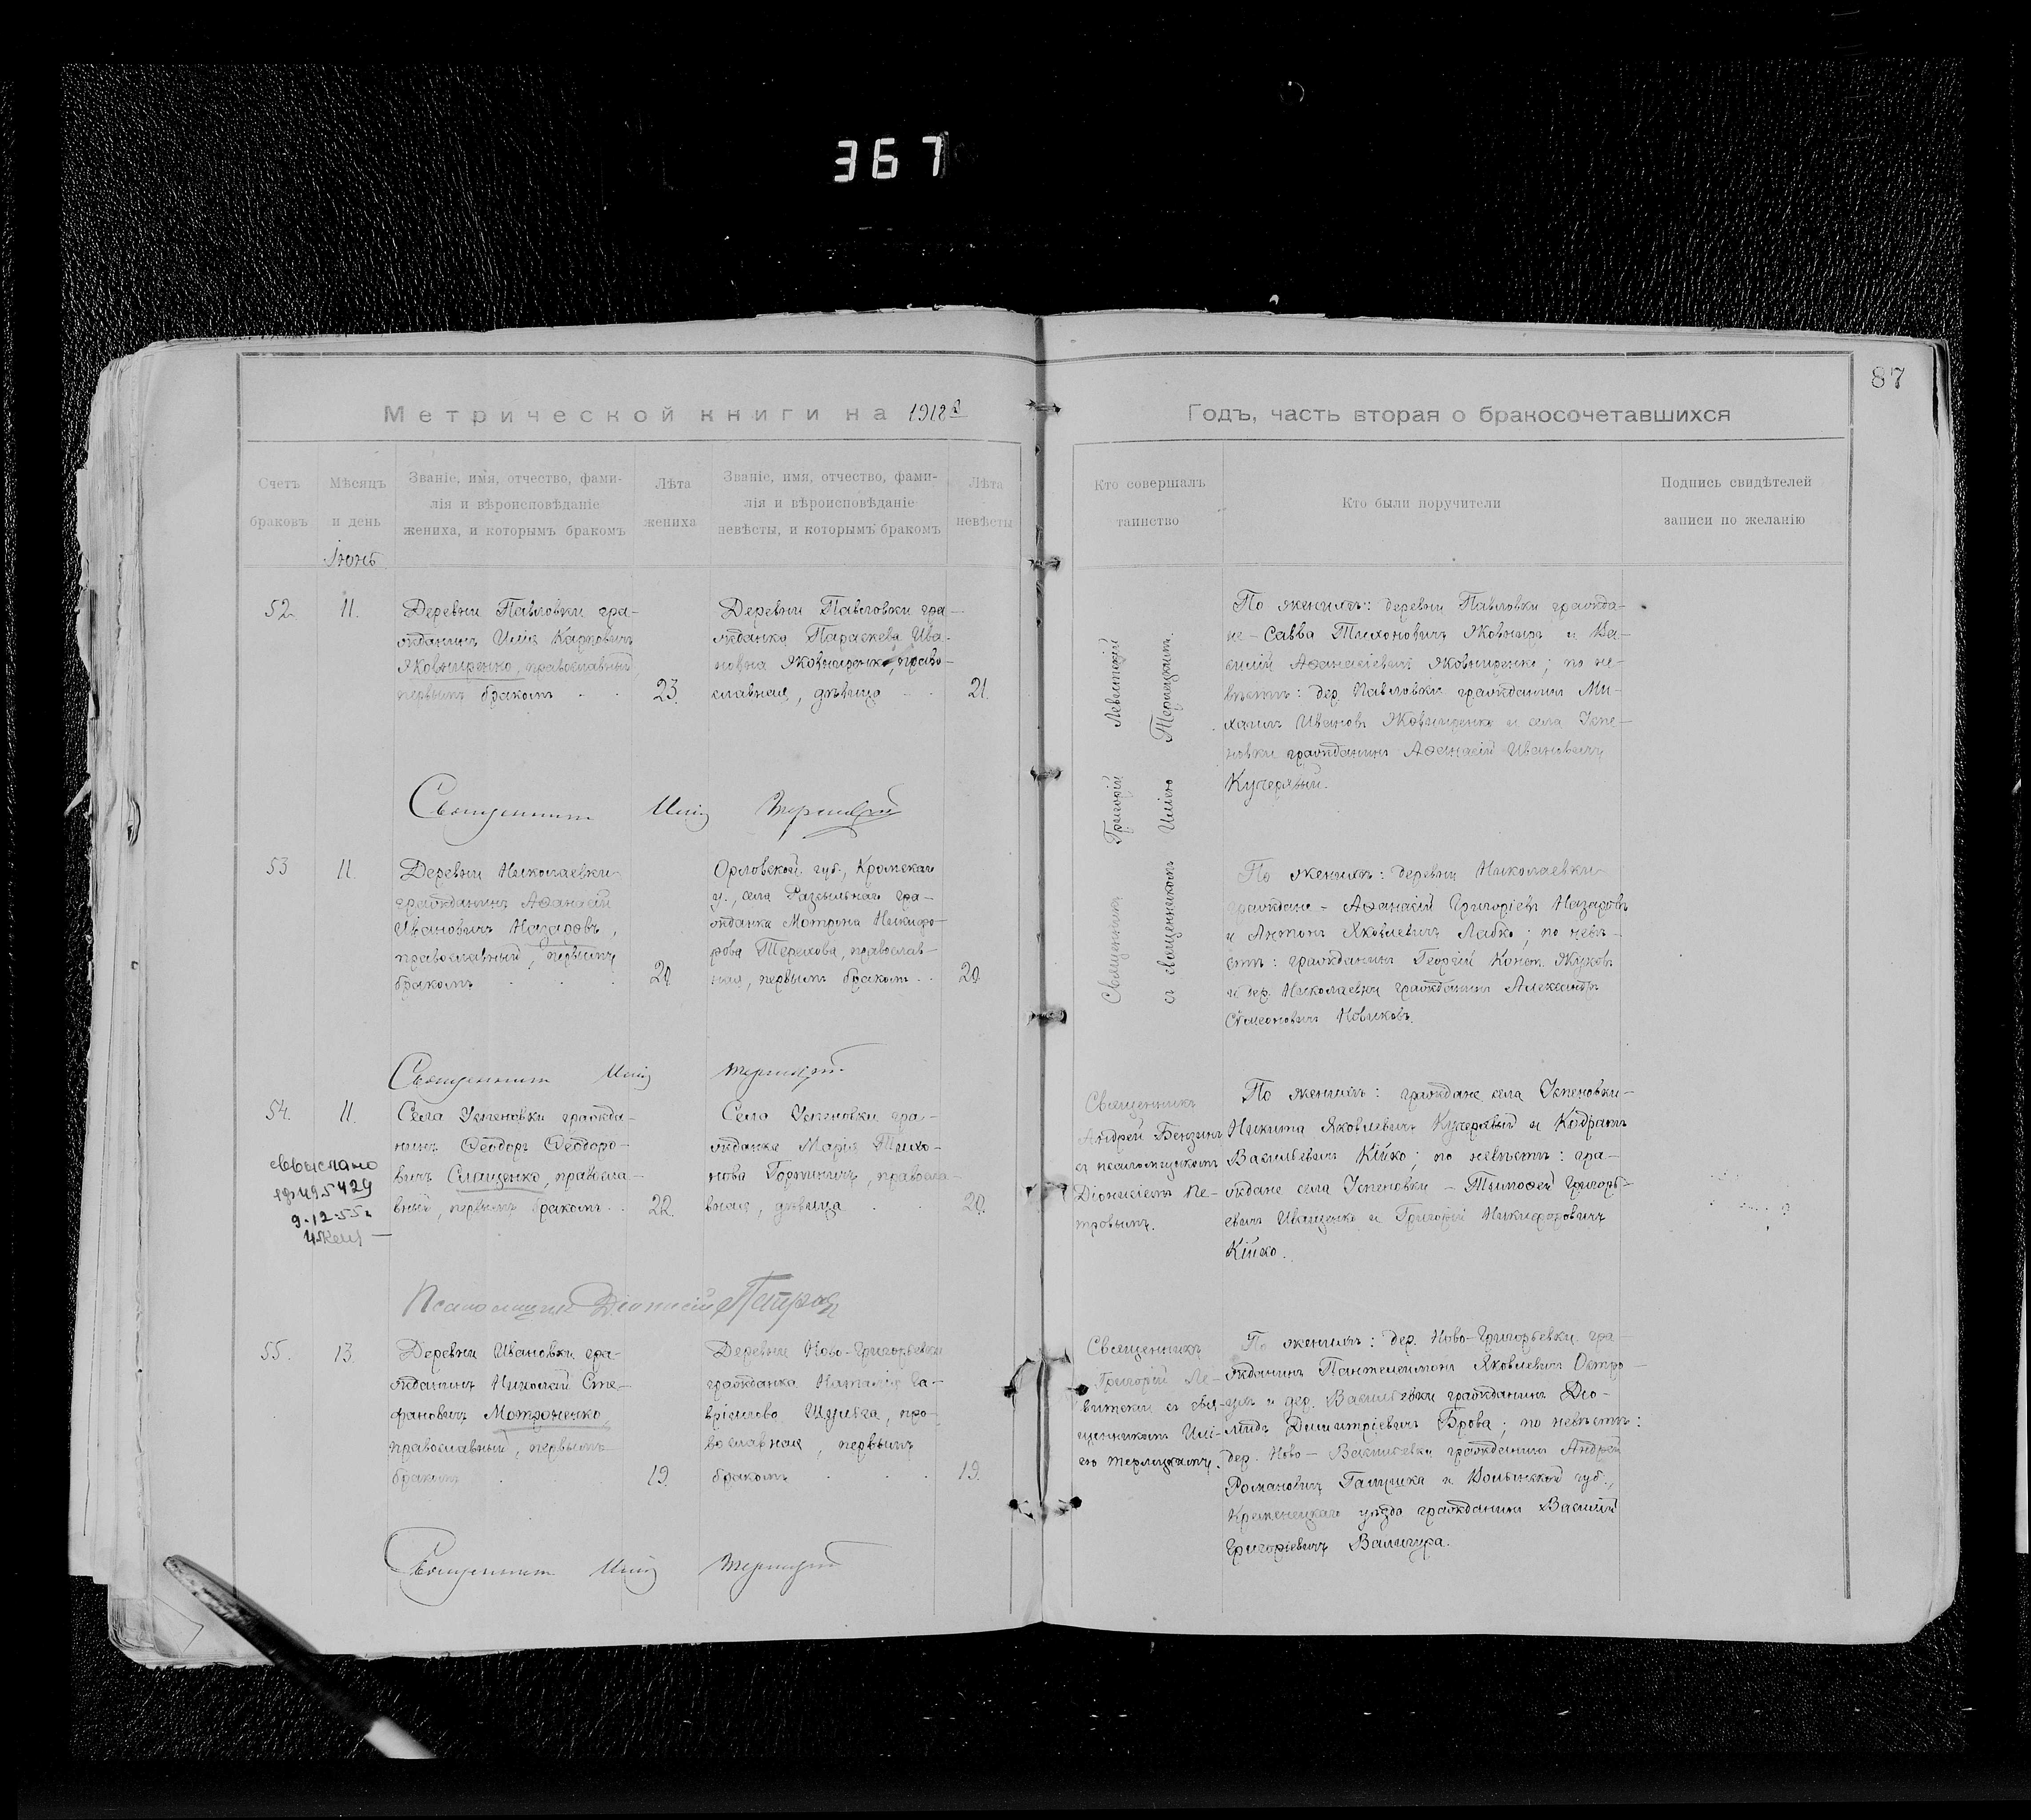 367
87
Метрической книги на 1918 г.
Годъ, часть вторая о бракосочетавшихся
Счетъ браковъ
Мѣсяцъ и день
Званіе, имя, отчество, фами-
лія и вѣроисповѣданіе
жениха, и которымъ бракомъ
Лѣта жениха
Званіе, имя, отчество, фами-
лія и вѣроисповѣданіе
невѣсты, и которымъ бракомъ
Лѣта невѣсты
Кто совершалъ таинство
Кто были поручители
Подпись свидѣтелей
записи по желанію
Іюнь
52.
11.
Деревни Павловки гра-
жданинъ Илія Карповичъ
Яковниренко, православный
первымъ бракомъ
23.
Деревни Павловки гра-
жданка Параскева Ива-
новна Яковниренко, право-
славная, дѣвица
21.
Священникъ Григорій Левитскій
съ священникомъ Иліею Терлецкимъ.
По женихѣ: деревни Павловки гражда-
не - Савва Тихоновичъ Яковниръ и Ва-
силій Аѳанасіевичъ Яковниренко; по не-
вѣстѣ: дер. Павловки гражданинъ Ми-
хаилъ Ивановъ и села Успе-
новки гражданинъ Аѳанасій Ивановичъ
Кучерявый.
Священникъ Илія Терлецкій
53
11.
Деревни Николаевки
гражданинъ Аѳанасій
Ивановичъ Назаровъ,
православный, первымъ
бракомъ
20
Орловской губ., Кромскаго
у., села гра-
жданка Матрона Никифо-
рова Терехова, православ-
ная, первымъ бракомъ
20
По женихѣ: деревни Николаевки
граждане - Аѳанасій Григоріевъ Назаровъ
и Антонъ Яковлевичъ Лабко; по невѣ-
стѣ: гражданинъ Георгій Конст. Жуковъ
и дер. Николаевки гражданинъ Александръ
Симеоновичъ Новиковъ.
Священникъ Илія Терлецкій
54.
11.
Села Успеновки гражда-
нинъ Ѳеодоръ Ѳеодоро-
вичъ Слащенко, правосла-
вный, первымъ бракомъ
22.
Села Успеновки гра-
жданка Марія Тихо-
нова правосла-
вная, дѣвица
20.
Выслано
495429
9-12-55г
Священникъ
Андрей Бензинъ
съ псаломщикомъ
Діонисіемъ Пе-
тровымъ.
По женихѣ: граждане села Успеновки-
Никита Яковлевичъ Кучерявый и Кодратъ
Васильевичъ Кійко; по невѣстѣ: гра-
ждане села Успеновки - Тимоѳей Григорь-
евичъ Иващенко и Григорій Никифоровичъ
Кійко.
Псаломщикъ Діонисій Петровъ
55.
13.
Деревни Ивановки гра-
жданинъ Николай Сте-
фановичъ Мотроненко,
православный, первымъ
бракомъ
19.
Деревни Ново-Григорьевки
гражданка Наталія Га-
вріилова пра-
вославная, первымъ
бракомъ
19.
Священникъ
Григорій Ле-
витскій съ свя-
щенникомъ Илі-
ею Терлецкимъ.
По женихѣ: дер. Ново-Григорьевки гра-
жданинъ Пантелеимонъ Яковлевичъ Остро-
и дер. Васильевки гражданинъ Діо-
мидъ Димитріевичъ Брова; по невѣстѣ:
дер. Ново-Васильевки гражданинъ Андрей
Романовичъ Галушка и Волынской губ.,
Кременецкаго уѣзда гражданинъ Василій
Григоріевичъ Валигура.
Священникъ Илія Терлецкій